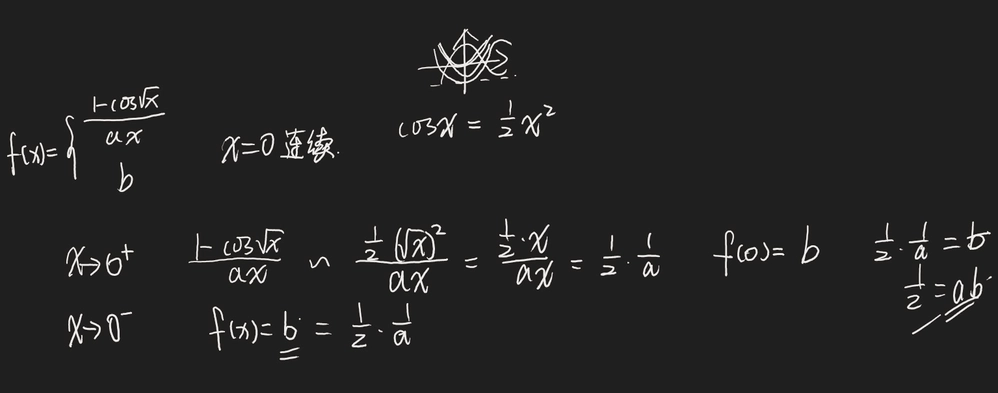 f(x)={ (1-cos√x)/(ax)
b
x=0 连续.
cosx = 1/2 x²
x→0⁺ (1-cos√x)/(ax) ∽ (1/2 (√x)²)/(ax) = (1/2·x)/(ax) = 1/2 · 1/a f(0)= b 1/2 · 1/a = b
1/2 = ab
x→0⁻ f(x)= b = 1/2 · 1/a